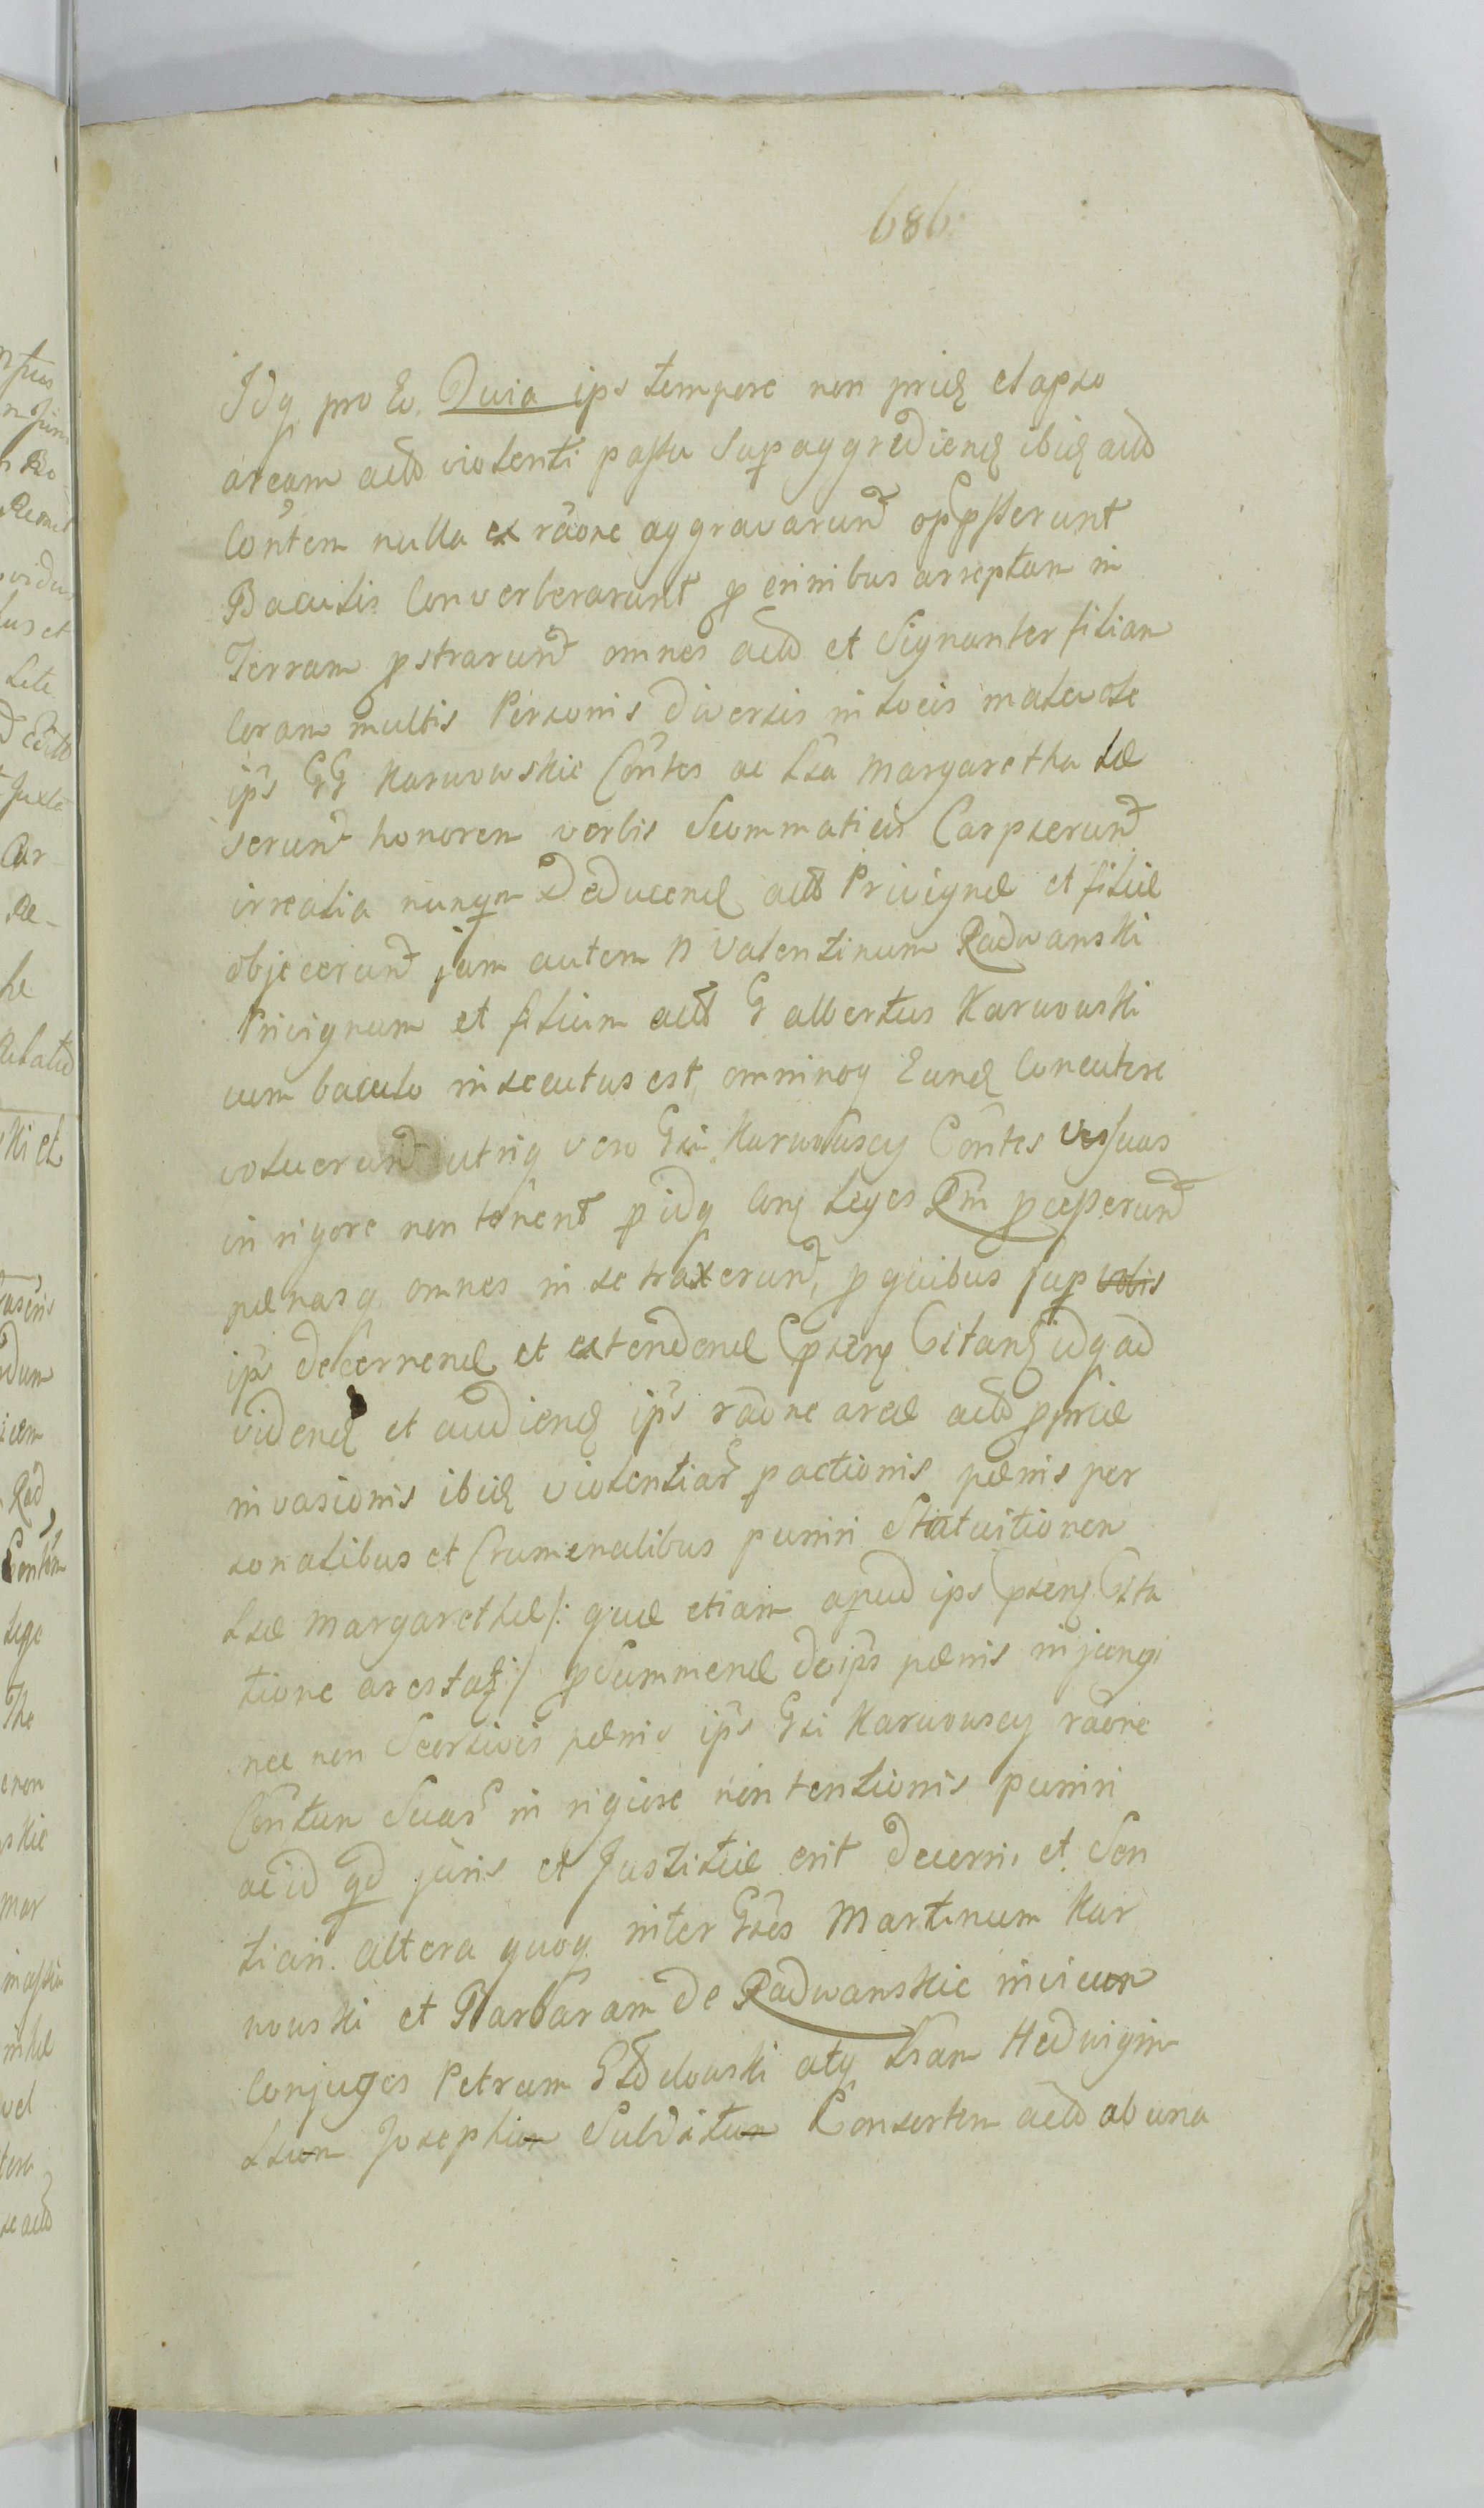 686
Idq pro Eo, Quia ips tempore non pride elapso
aream actô violenti passu supaggrediend ibid actô
Contem nulla ex raone aggravarunt oppsserunt
Baculis Converberarunt p crinibus arreptam in
Terram pstrarunt omnes actô et Signanter filiam
Coram multis Personis diversis in Locis malevole
ips GG Karwowskie Contes ac Lta Margaretha Læ
serunt honorem verbis Scommaticis Carpserunt
irrealia nunqm deducend actô Privignæ et filiæ
objecerunt jam autem N Valentinum Radwanski
Privignum et filium actô G Albertus Karwowski
cum baculo insecutus est, omninoq Eund Concutere
voluerunt utriq vero Gsi Karwowscy Contes Vestuas
in rigore non tenent p idq Cong Leges Rni pceperunt
pænasq omnes in se traxerunt, p quibus sup
ips decernend et extendend Citang idq ad
vidend et audiend ips raone areæ actô ppriæ
invasionis ibid violentiar pactionis pænis per
sonalibus et Crumenalibus puniri Statuitionen
Ltæ Margarethæ /: quæ etiam apud ips Cita
tione arestat :/ psummend de ips pænis injungi
nec non Scorsivis pænis ips Gsi Karwowscy raone
Contum Suar in rigore non tentionis puniri
acid qd juris et Justitiæ erit decerni, et Sen
tian. altera quoq inter Gses Martinum Kar
wowski et Barbaram de Radwanskie invicem
Conjuges Petrum atq Ltam Hedwigim
Ltum Josephum Subditum Consortem actô ab una